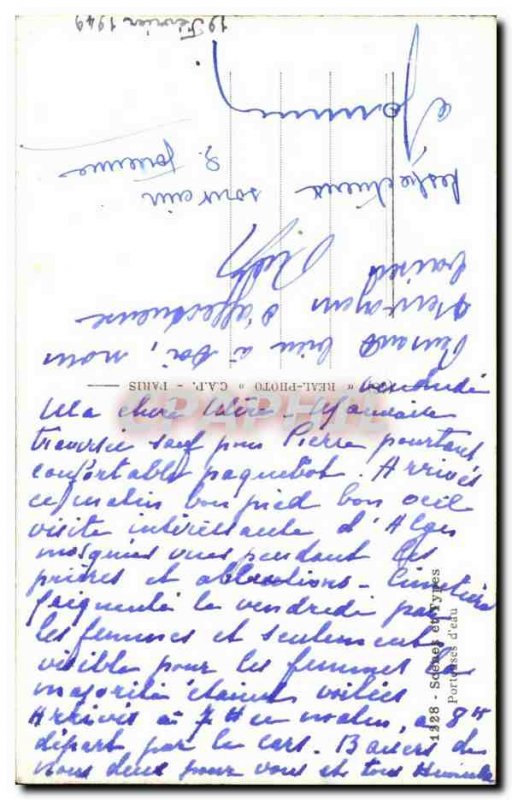 19 Février 1949
Pensant bien à toi, nous
t'envoyons d'affectueux
baisers
Respectueux
souvenir
" REAL-PHOTO " C.A.P. - PARIS
CPAPHIL
vendredi
Ma chère Mère - Mauvaise
traversée sauf pour Pierre pourtant
confortable paquebot. Arrivés
ce matin bon pied bon oeil
visite intéressante d'Alger
mosquées vues pendant les
prières et ablutions - Cimetière
fréquenté le vendredi par
les femmes et seulement
visible pour les femmes la
majorité étaient voilées
Arrivés à 7 H ce matin, à 8H
départ par le cars. Baisers de
nous deux pour vous et tous
1328 - Scènes et Types
Porteuses d'eau